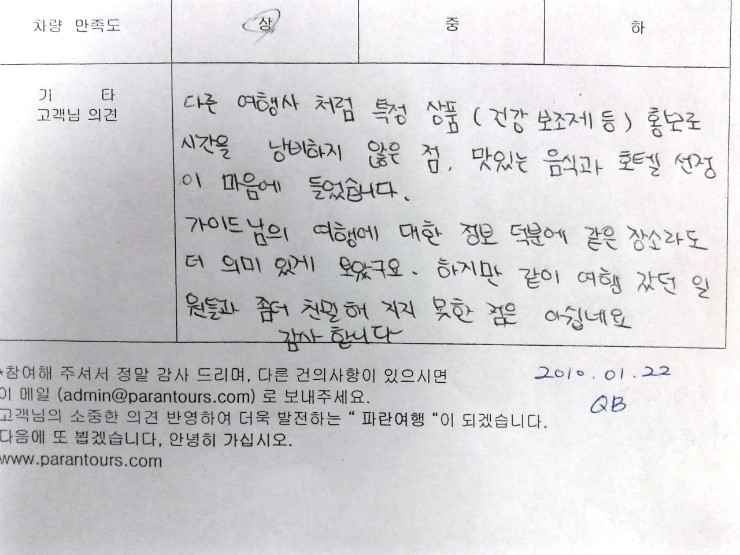 차량 만족도 상 중 하
기 타
고객님 의견
다른 여행사 처럼 특정 상품 (건강 보조제 등) 홍보로
시간을 낭비하지 않은 점, 맛있는 음식과 호텔 선정
이 마음에 들었습니다.
가이드님의 여행에 대한 정보 덕분에 같은 장소라도
더 의미 있게 보았구요. 하지만 같이 여행 갔던 일
원들과 좀더 친밀해 지지 못한 점은 아쉽네요
감사 합니다
*참여해 주셔서 정말 감사 드리며, 다른 건의사항이 있으시면
이 메일 (admin@parantours.com) 로 보내주세요.
고객님의 소중한 의견 반영하여 더욱 발전하는 “ 파란여행 “이 되겠습니다.
다음에 또 뵙겠습니다, 안녕히 가십시오.
www.parantours.com
2010.01.22
QB